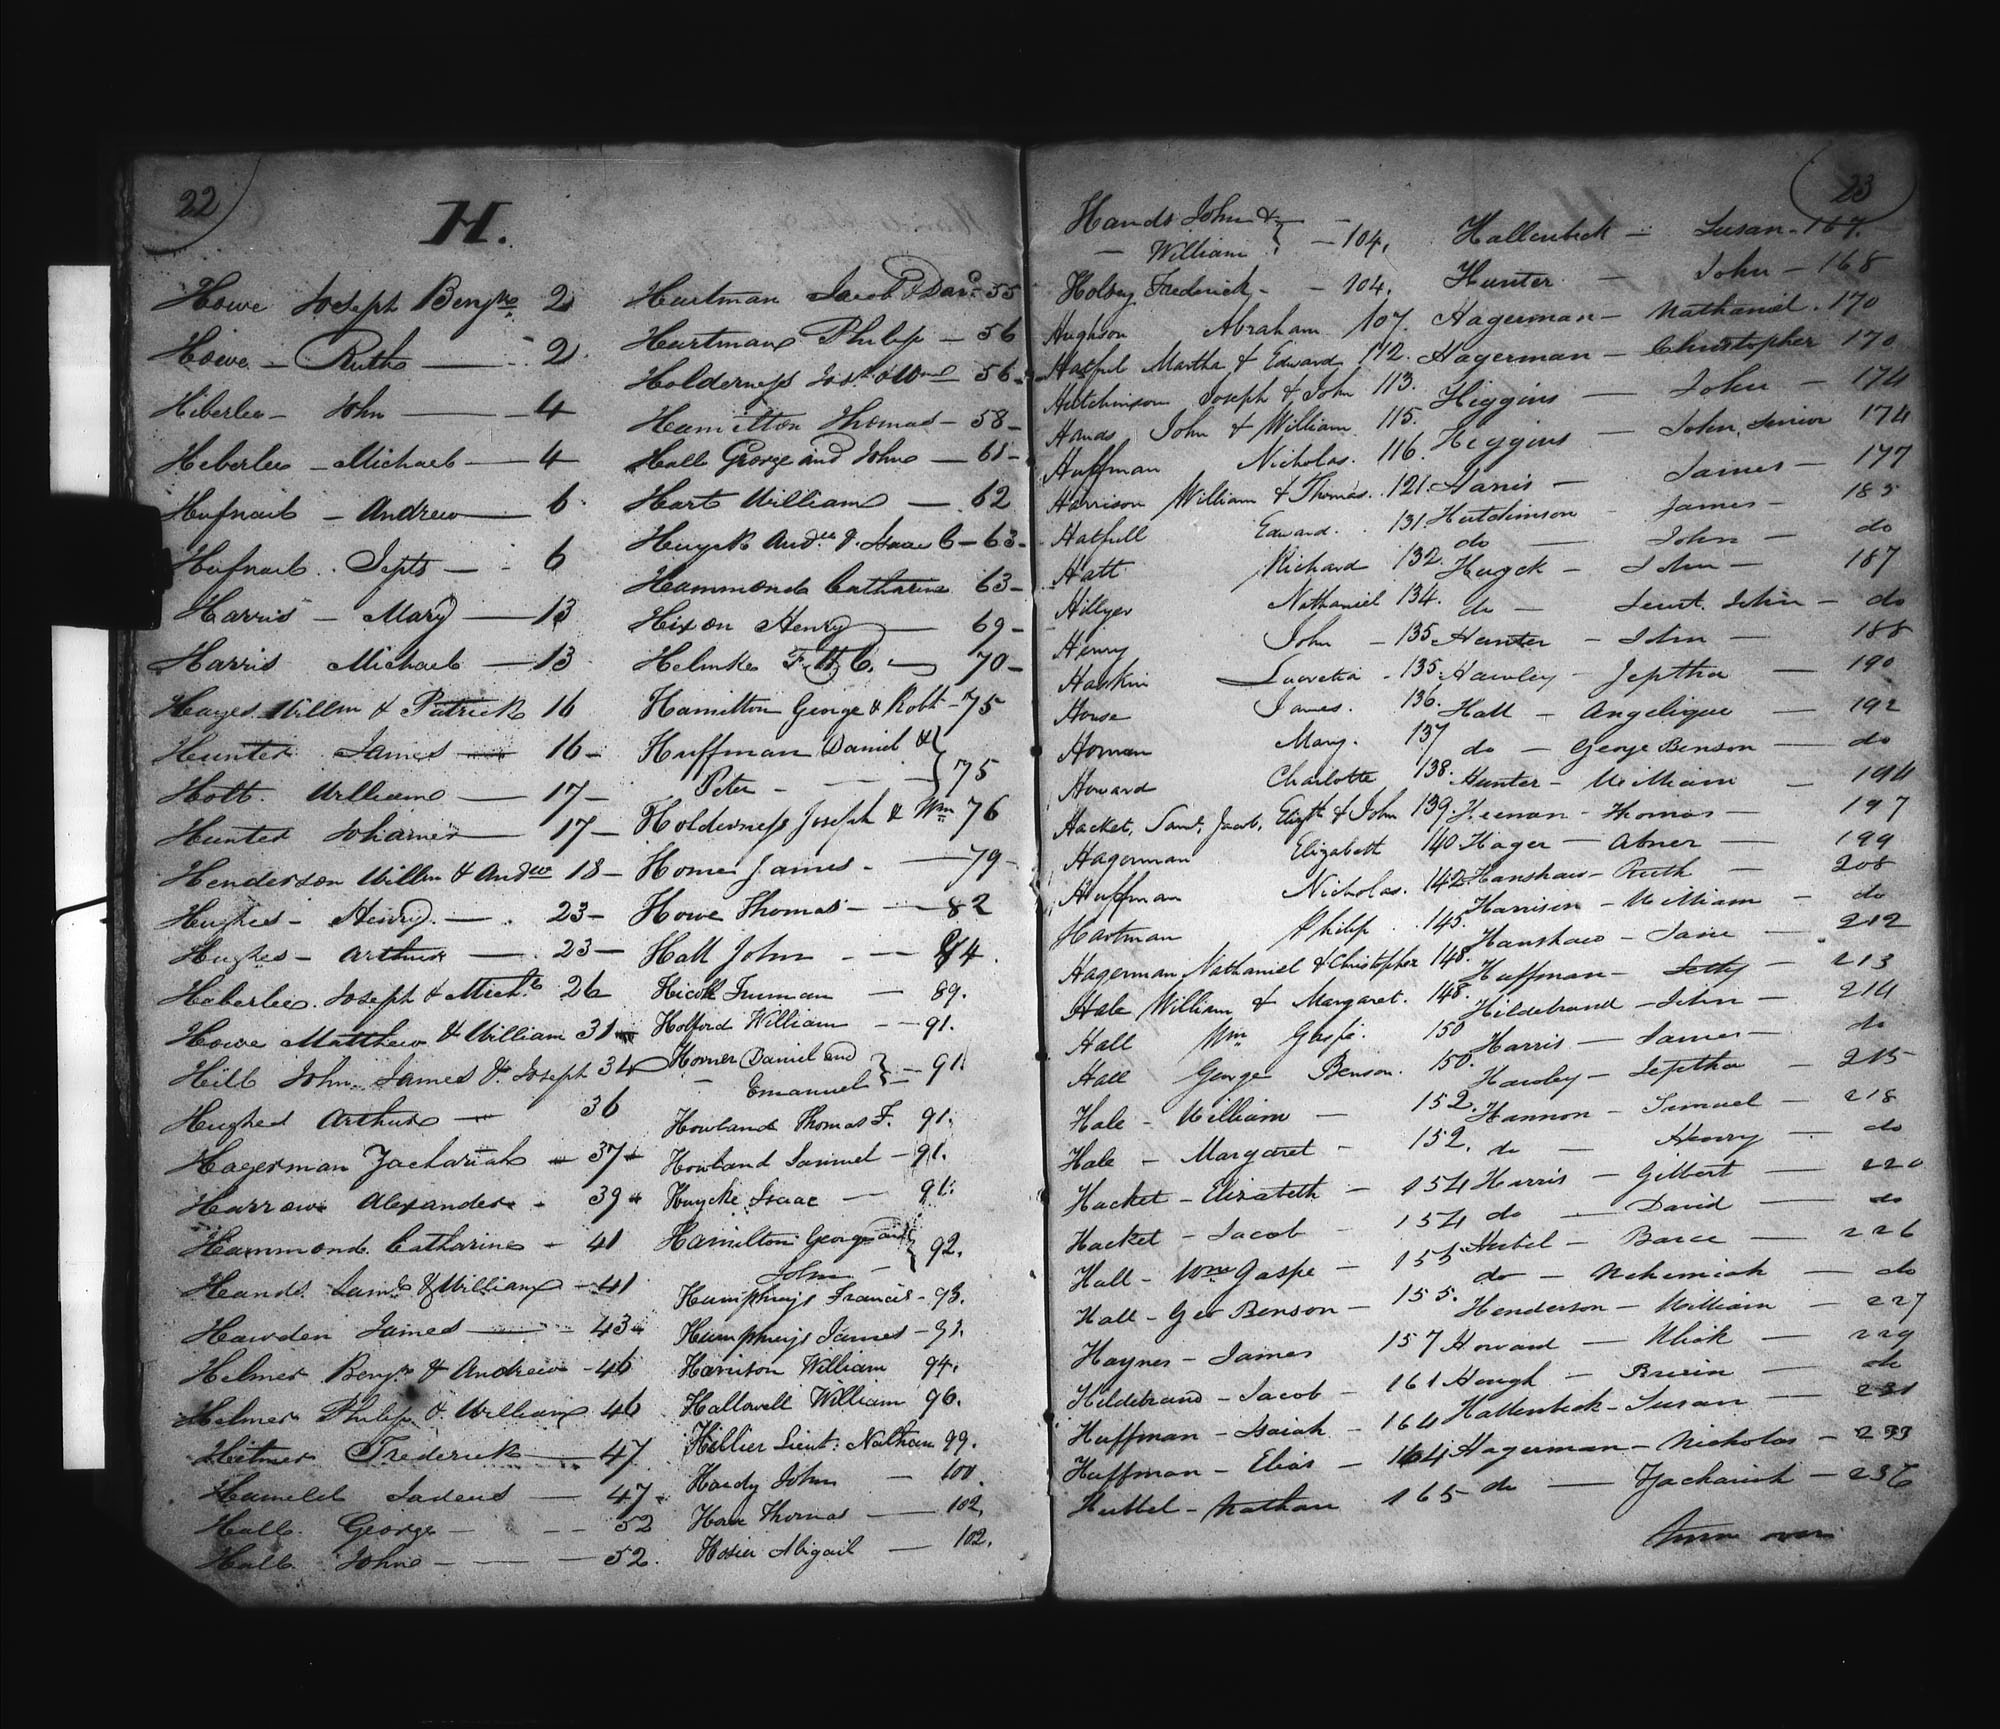 22
H.
Howe Joseph Benjn 2
Howe - Ruth 2
Heberlee - John 4
Heberlee - Michael 4
Hufnail - Andrew 6
Hufnail. 6
Harris - Mary 13
Harris Michael 13
Hayes Willm & Patrick 16
Hunter James 16
Holt. William 17
Hunter 17
Henderson Willm & Andw 18
Hughes - Henry. 23
Hughes - Arthur 23
Heberlee. Joseph & Michl 26
Howe Matthew & William 31
Hill John James & Joseph 34
Hughes Arthur 36
Hagerman Zachariah 37
Harrow Alexander 39
Hammond Catharine - 41
Hands Saml & William - 41
Hawden James 43
Helmer Benjn & Andrew - 46
Helmer Philip & William 46
Helmer Frederick 47
47
Hall. George 52
Hall John 52.
Hartman Jacob & Davd 55
Hartman Philip - 56
Holderness Josh & Wm 56
Hamilton Thomas - 58
Hall George and John 61
Hart William 62
Huyck Andw & Isaac C - 63
Hammond Catharine 63
Hixon Henry 69
Helmke F. C. 70
Hamilton George & Robt - 75
Huffman Daniel &
Peter - 75
Holderness Joseph & Wm 76
Horne James - 79
Howe Thomas - 82
Hall John 84.
Hicok Truman 89.
Holford William 91.
Horner Daniel and
Emanuel 91.
Howland Thomas F. 91.
Howland Samuel - 91.
Huycke Isaac 91.
Hamilton George and
John - 92.
Humphreys Francis - 93.
Humphreys James - 93.
Harrison William 94.
Hallowell William 96.
Hillier Lieut: Nathan 99.
Hardy John 100.
Horn Thomas 102.
Hosier Abigail 102.
23
Hands John &
- William 104.
Holsey Frederick - 104.
Hughson Abraham 107.
Hatful Martha & Edward 112.
Hutchinson Joseph & John 113.
Hands John & William 115.
Huffman Nicholas. 116.
Harrison William & Thomas. 121.
Hatfull Edward. 131.
Hatt Richard 132.
Hillyer Nathaniel 134.
Henry John - 135
Haskin Lucretia - 135.
House James. 136.
Homan Mary. 137
Howard Charlotte 138.
Hacket, Saml, Jacob, Elizth & John 139.
Hagerman Elizabeth 140
Huffman Nicholas. 142
Hartman Philip 145.
Hagerman Nathaniel & Christopher 148.
Hale William & Margaret. 148.
Hall Wm Gaspé. 150
Hall George Benson. 150.
Hale - William 152.
Hale - Margaret - 152.
Hacket - Elizabeth - 154
Hacket - Jacob 154
Hall - Wm Gaspe - 155
Hall - Geo Benson - 155.
Haynes - James 157
Hildebrand - Jacob - 161
Huffman - Isaiah - 164
Huffman - Elias - 164
Hubbel - Nathan 165
Hallenbeck - Susan - 167.
Hunter - John - 168
Hagerman - Nathaniel. 170
Hagerman - Christopher 170
Higgins - John - 174
Higgins - John, Senior 174
Harris - James - 177
Hutchinson - James - 185
do - John - do
Huyck - John - 187
do - Lieut. John - do
Hunter - John - 188
Hawley - Jeptha - 190
Hall - Angelique - 192
do - George Benson - do
Hunter - William - 194
Heenan - Thomas - 197
Hager - Abner - 199
Hanshaw - Ruth - 208
Harrison - William - do
Hanshaw - Jane - 212
Huffman - Letty - 213
Hildebrand - John - 214
Harris - James - do
Hawley - Jeptha - 215
Hannon - Samuel - 218
do - Henry - do
Harris - Gilbert - 220
do - David - do
Hubbel - 226
do - Nehemiah - do
Henderson - William - 227
Howard - 229
Hough - do
Hallenbeck - Susan - 231
Hagerman - Nicholas - 233
do - Zachariah - 236
turn over